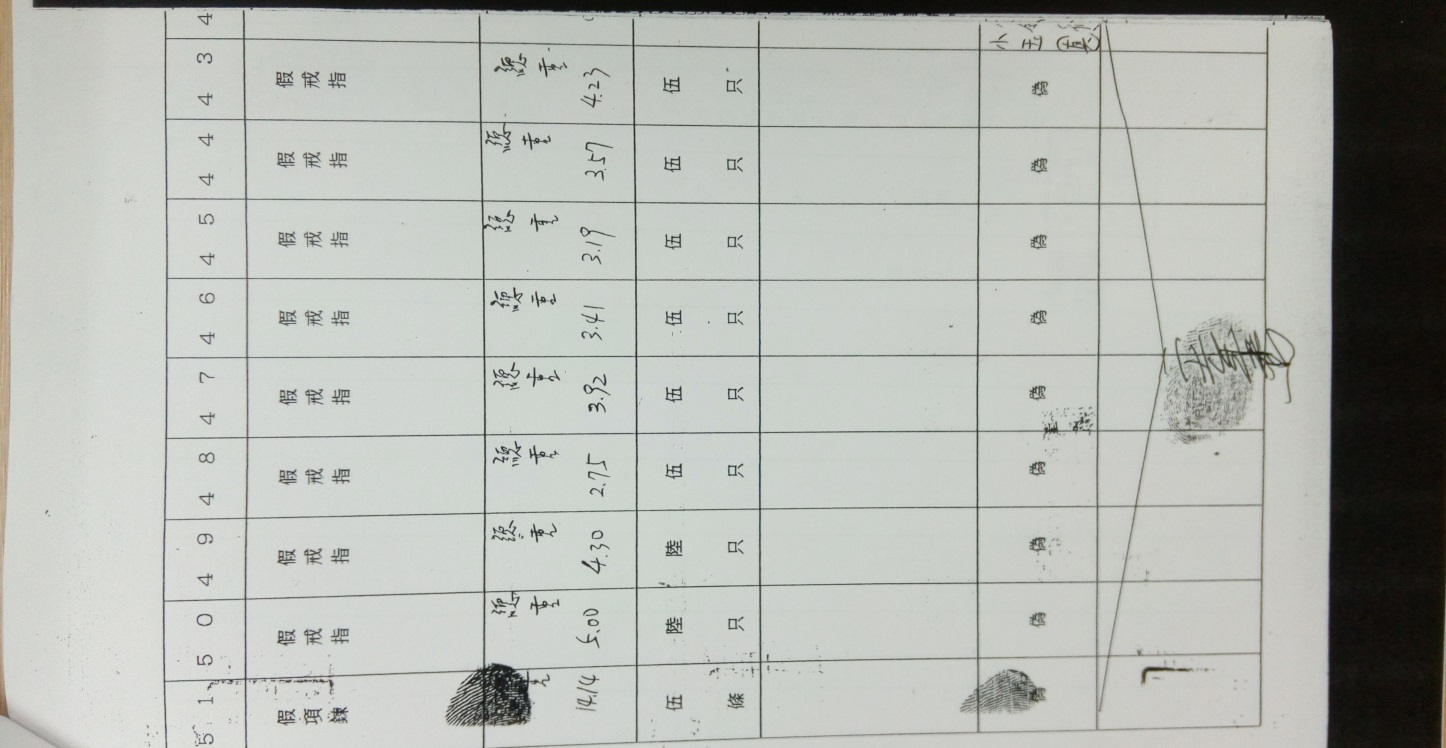 小玉
43 假戒指 總重 4.23 伍只 偽
44 假戒指 總重 3.57 伍只 偽
45 假戒指 總重 3.19 伍只 偽
46 假戒指 總重 3.41 伍只 偽
47 假戒指 總重 3.92 伍只 偽
48 假戒指 總重 2.75 伍只 偽
49 假戒指 總重 4.30 陸只 偽
50 假戒指 總重 5.00 陸只 偽
51 假項鍊 14.14 伍條 偽